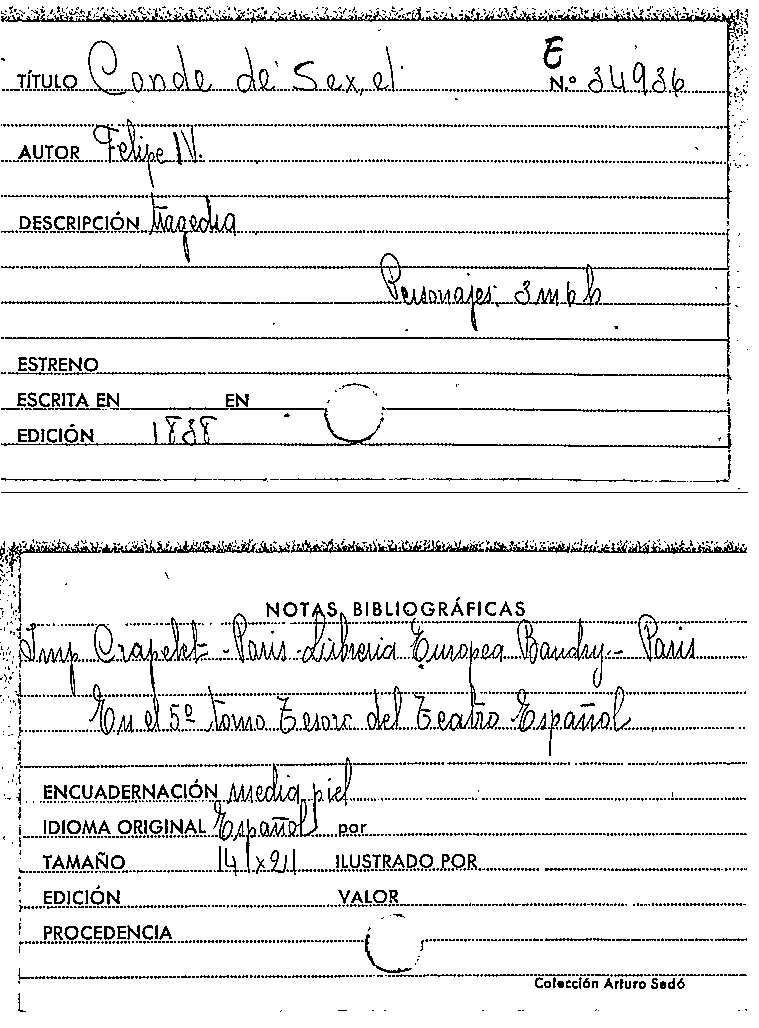 E
TÍTULO Conde de Sex, el N.º 34936
AUTOR Felipe IV.
DESCRIPCIÓN tragedia
Personajes: 3 m 6 h
ESTRENO
ESCRITA EN EN
EDICIÓN 1838
NOTAS BIBLIOGRÁFICAS
Imp Crapelet - Paris - Libreria Europea Baudry - Paris
En el 5º tomo Tesoro del Teatro Español
ENCUADERNACIÓN media piel
IDIOMA ORIGINAL Español por
TAMAÑO 14 x 21 ILUSTRADO POR
EDICIÓN VALOR
PROCEDENCIA
Colección Arturo Sedó